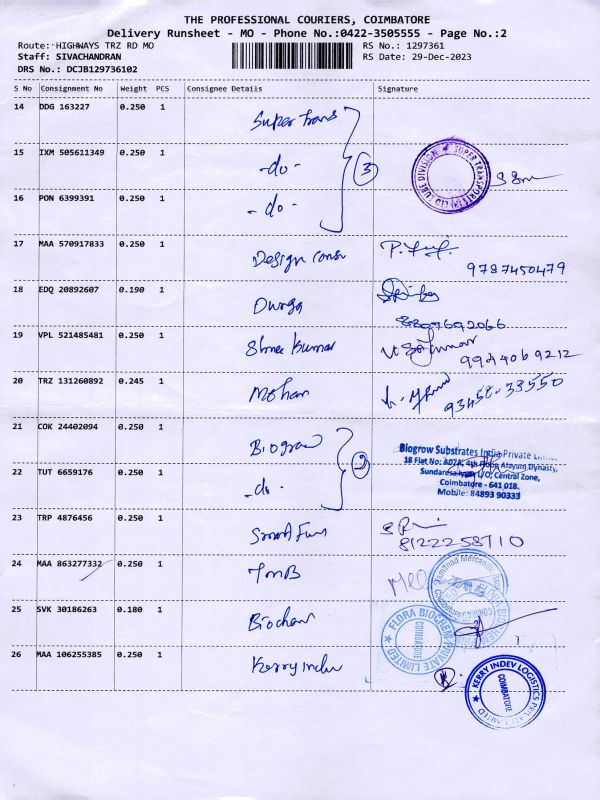 THE PROFESSIONAL COURIERS, COIMBATORE
Delivery Runsheet - MO - Phone No.:0422-3505555 - Page No.:2
Route: HIGHWAYS TRZ RD MO
RS No.: 1297361
Staff: SIVACHANDRAN
RS Date: 29-Dec-2023
DRS No.: DCJB129736102
S No Consignment No Weight PCS Consignee Details Signature
14 DDG 163227 0.250 1 Super trans
15 IXM 505611349 0.250 1 -do- 3
SUPER TRANSPORTS (P) LTD LUBE DIVISION
16 PON 6399391 0.250 1 -do-
17 MAA 570917833 0.250 1 Design cons
9787450479
18 EDQ 20892607 0.190 1 Durga
19 VPL 521485481 0.250 1 Shree kumar
20 TRZ 131260892 0.245 1 Mohan
93458-33550
21 COK 24402094 0.250 1 Biogrow 2
Biogrow Substrates India Private
18 Flat No: A07A, 4th Floor, Alayam Dynasty,
Central Zone,
Coimbatore - 641 018.
Mobile: 84893 90333
22 TUT 6659176 0.250 1 -do-
23 TRP 4876456 0.250 1 Smart Fun
8122258710
24 MAA 863277332 0.250 1 TMB
Tamilnad Mercantile Bank
25 SVK 30186263 0.180 1 Biochem
FLORA BIOCHEM PRIVATE LIMITED COIMBATORE
26 MAA 106255385 0.250 1 Kerry Indev
KERRY INDEV LOGISTICS PRIVATE LIMITED COIMBATORE